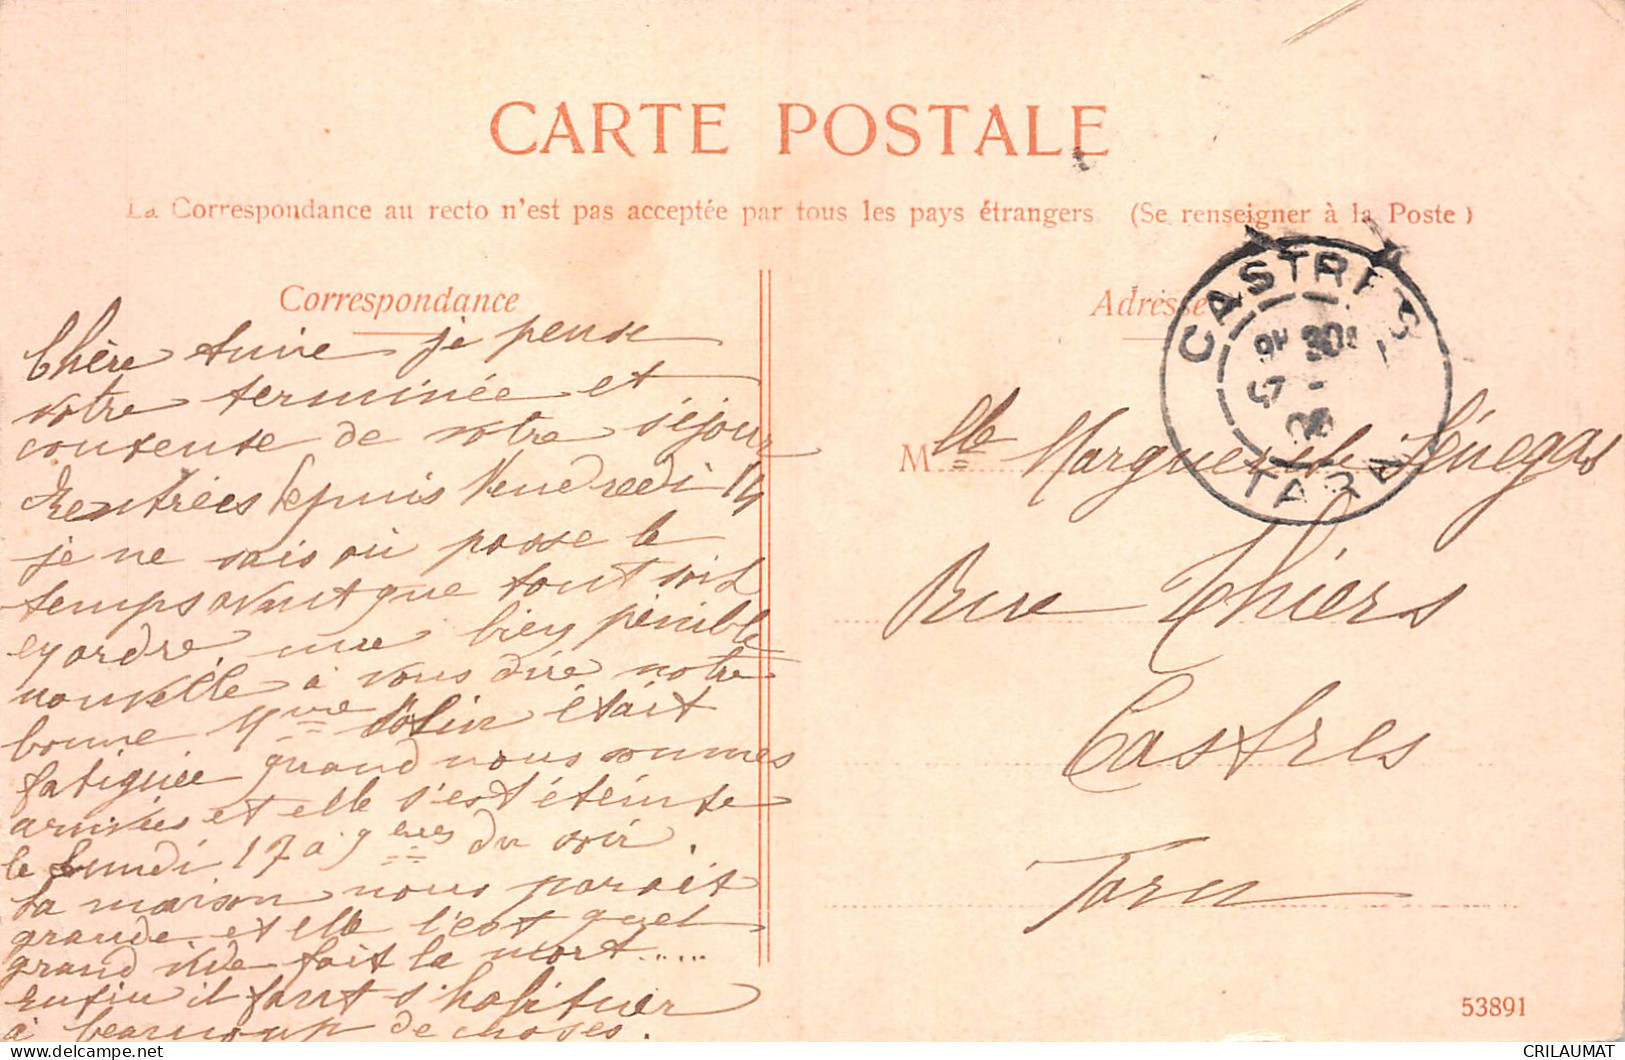 CARTE POSTALE
La Correspondance au recto n'est pas acceptée par tous les pays étrangers (Se renseigner à la Poste)
Correspondance
Chère amie je pense
votre terminée et
contente de votre séjour
Rentrées depuis Vendredi 14
je ne sais où passe le
temps avant que tout soit
en ordre, une bien pénible
nouvelle à vous dire notre
bonne Mme était
fatiguée quand nous sommes
arrivées et elle s'est éteinte
le Lundi 17 à 9 heures du soir.
la maison nous parait
grande et elle l'est quel
grand vide fait la mort.....
enfin il faut s'habituer
à beaucoup de choses.
Adresse
CASTRES
TARN
Mlle Marguerite Sénégas
Rue Thiers
Castres
Tarn
53891
CRILAUMAT